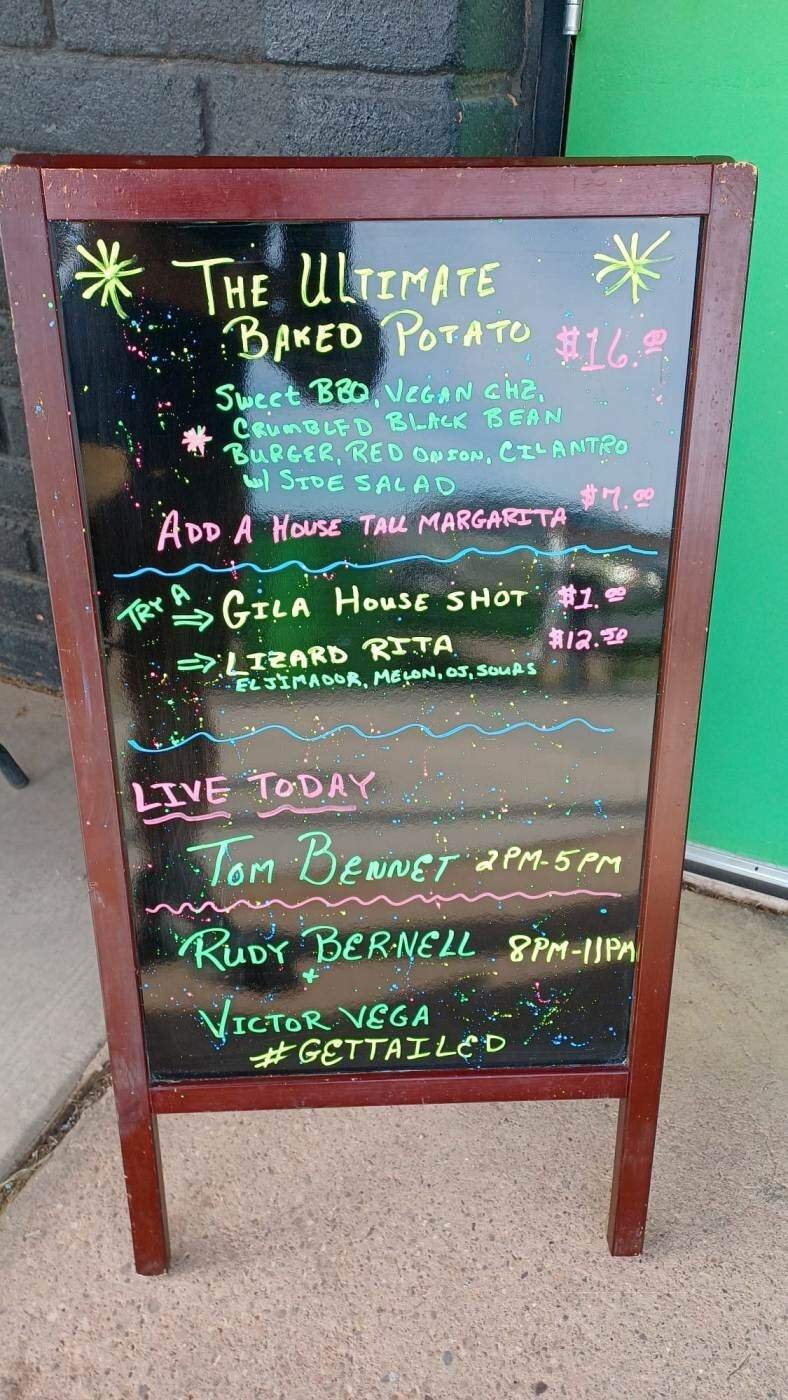 THE ULTIMATE
BAKED POTATO $16.00
SWEET BBQ, VEGAN CHZ,
CRUMBLED BLACK BEAN
BURGER, RED ONION, CILANTRO
W/ SIDE SALAD
ADD A HOUSE TALL MARGARITA $7.00
TRY A ⇒ GILA HOUSE SHOT $1.00
⇒ LIZARD RITA $12.50
EL JIMADOR, MELON, OJ, SOURS
LIVE TODAY
TOM BENNET 2PM-5PM
RUDY BERNELL 8PM-11PM
+
VICTOR VEGA
#GETTAILED